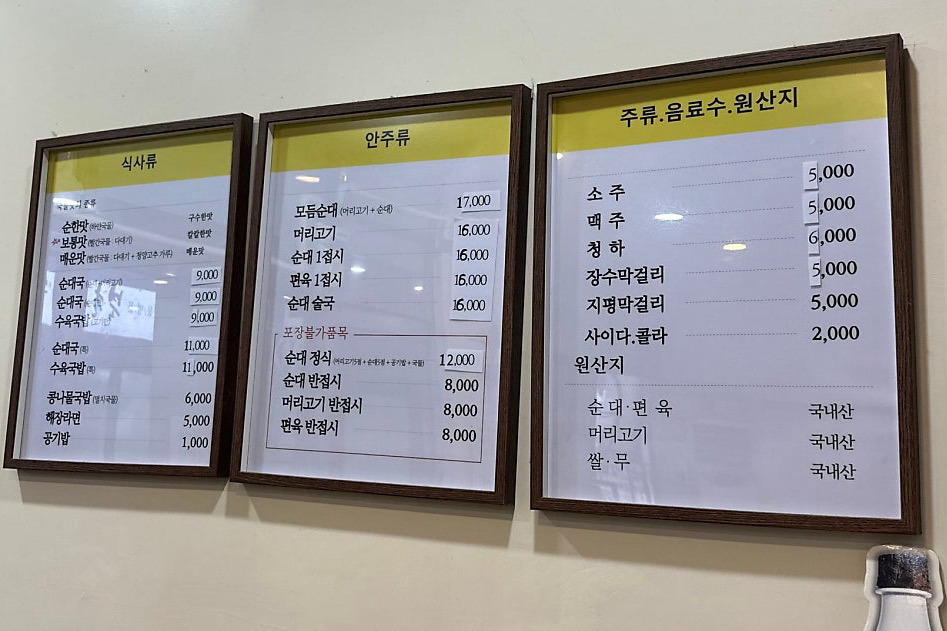 식사류
종류
순한맛 (하얀국물) 구수한맛
보통맛 (빨간국물 : 다대기) 칼칼한맛
매운맛 (빨간국물 : 다대기 + 청양고추 가루) 매운맛
순대국 9,000
순대국 9,000
수육국밥 (고기만) 9,000
순대국 (특) 11,000
수육국밥 (특) 11,000
콩나물국밥 (멸치국물) 6,000
해장라면 5,000
공기밥 1,000
안주류
모듬순대 (머리고기 + 순대) 17,000
머리고기 16,000
순대 1접시 16,000
편육 1접시 16,000
순대 술국 16,000
포장불가품목
순대 정식 (머리고기5점 + 순대5점 + 공기밥 + 국물) 12,000
순대 반접시 8,000
머리고기 반접시 8,000
편육 반접시 8,000
주류.음료수.원산지
소 주 5,000
맥 주 5,000
청 하 6,000
장수막걸리 5,000
지평막걸리 5,000
사이다.콜라 2,000
원산지
순 대 · 편 육 국내산
머리고기 국내산
쌀 · 무 국내산